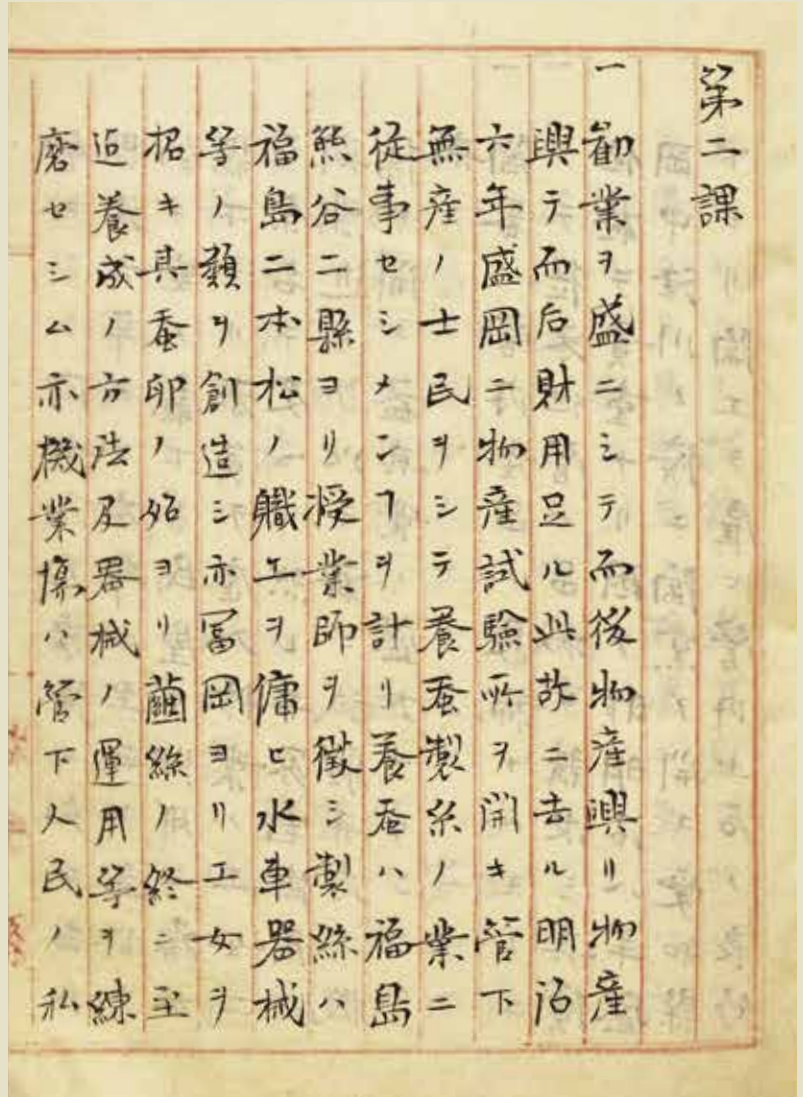 第二課
一勧業ヲ盛ニシテ而後物産興リ物産
興テ而后財用足ル此故ニ去ル明治
六年盛岡ニ物産試験所ヲ開キ管下
無産ノ士民ヲシテ養蚕製糸ノ業ニ
従事セシメンヿヲ計リ養蚕ハ福島
熊谷二縣ヨリ授業師ヲ徴シ製絲ハ
福島二本松ノ職工ヲ傭ヒ水車器械
等ノ類ヲ創造シ亦冨岡ヨリ工女ヲ
招キ其蚕卵ノ始ヨリ繭絲ノ終ニ至
迠養成ノ方法及器械ノ運用等ヲ練
磨セシム亦機業場ハ管下人民ノ私